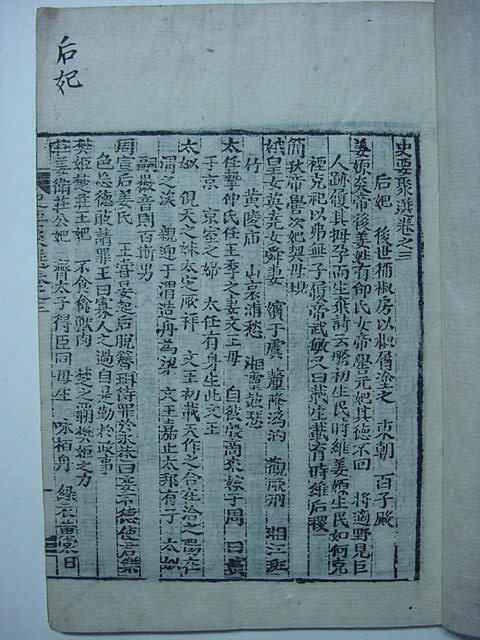 后妃
史要聚選卷之三
后妃 後世稱椒房以椒屑塗之 東朝 百子殿
姜嫄炎帝後姜姓有邰氏女帝嚳元妃其德不回 將適野見巨
人跡履其拇孕而生棄詩云厥初生民時維姜嫄生民如何克
禋克祀以弗無子履帝武敏又曰載生載育時維后稷
簡狄帝嚳次妃契母
娥皇女英堯女舜妻 嬪于虞 釐降潙汭 觀厥刑 湘江班
竹 黃陵庙 山哀浦愁 湘靈鼓瑟
太任摯仲氏任王季之妻文王母 自彼殷商來嫁于周 曰嬪
于京 京室之婦 太任有身生此文王
太姒 俔天之妹太定厥祥 文王初載天作之合在洽之陽在
渭之涘 親迎于渭造舟為梁 文王嘉止大邦有子 太姒
嗣徽音則百斯男
周宣后姜氏 王宣晏起后脫簪珥待罪於永巷曰妾不德使君樂
色忘德敢請罪王曰寡人之過自是勤於政事
樊姬楚莊王妃 不食禽獸肉 楚之覇樊姬之力
莊姜衛莊公妃 齊太子得臣同母生 咏栢舟 綠衣黃裳日